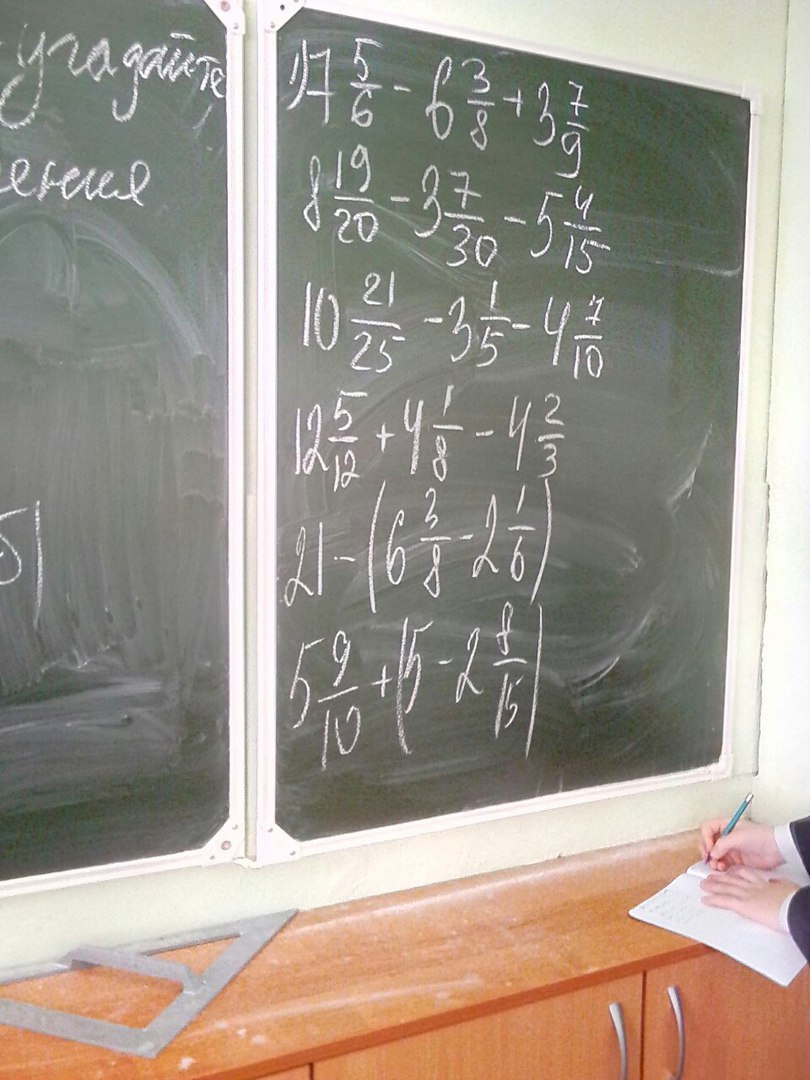 угадайте
ения
б)
17 5/6 - 6 3/8 + 3 7/9
8 19/20 - 3 7/30 - 5 4/15
10 21/25 - 3 1/5 - 4 7/10
12 5/12 + 4 1/8 - 4 2/3
21 - (6 3/8 - 2 1/6)
5 9/10 + (5 - 2 8/15)